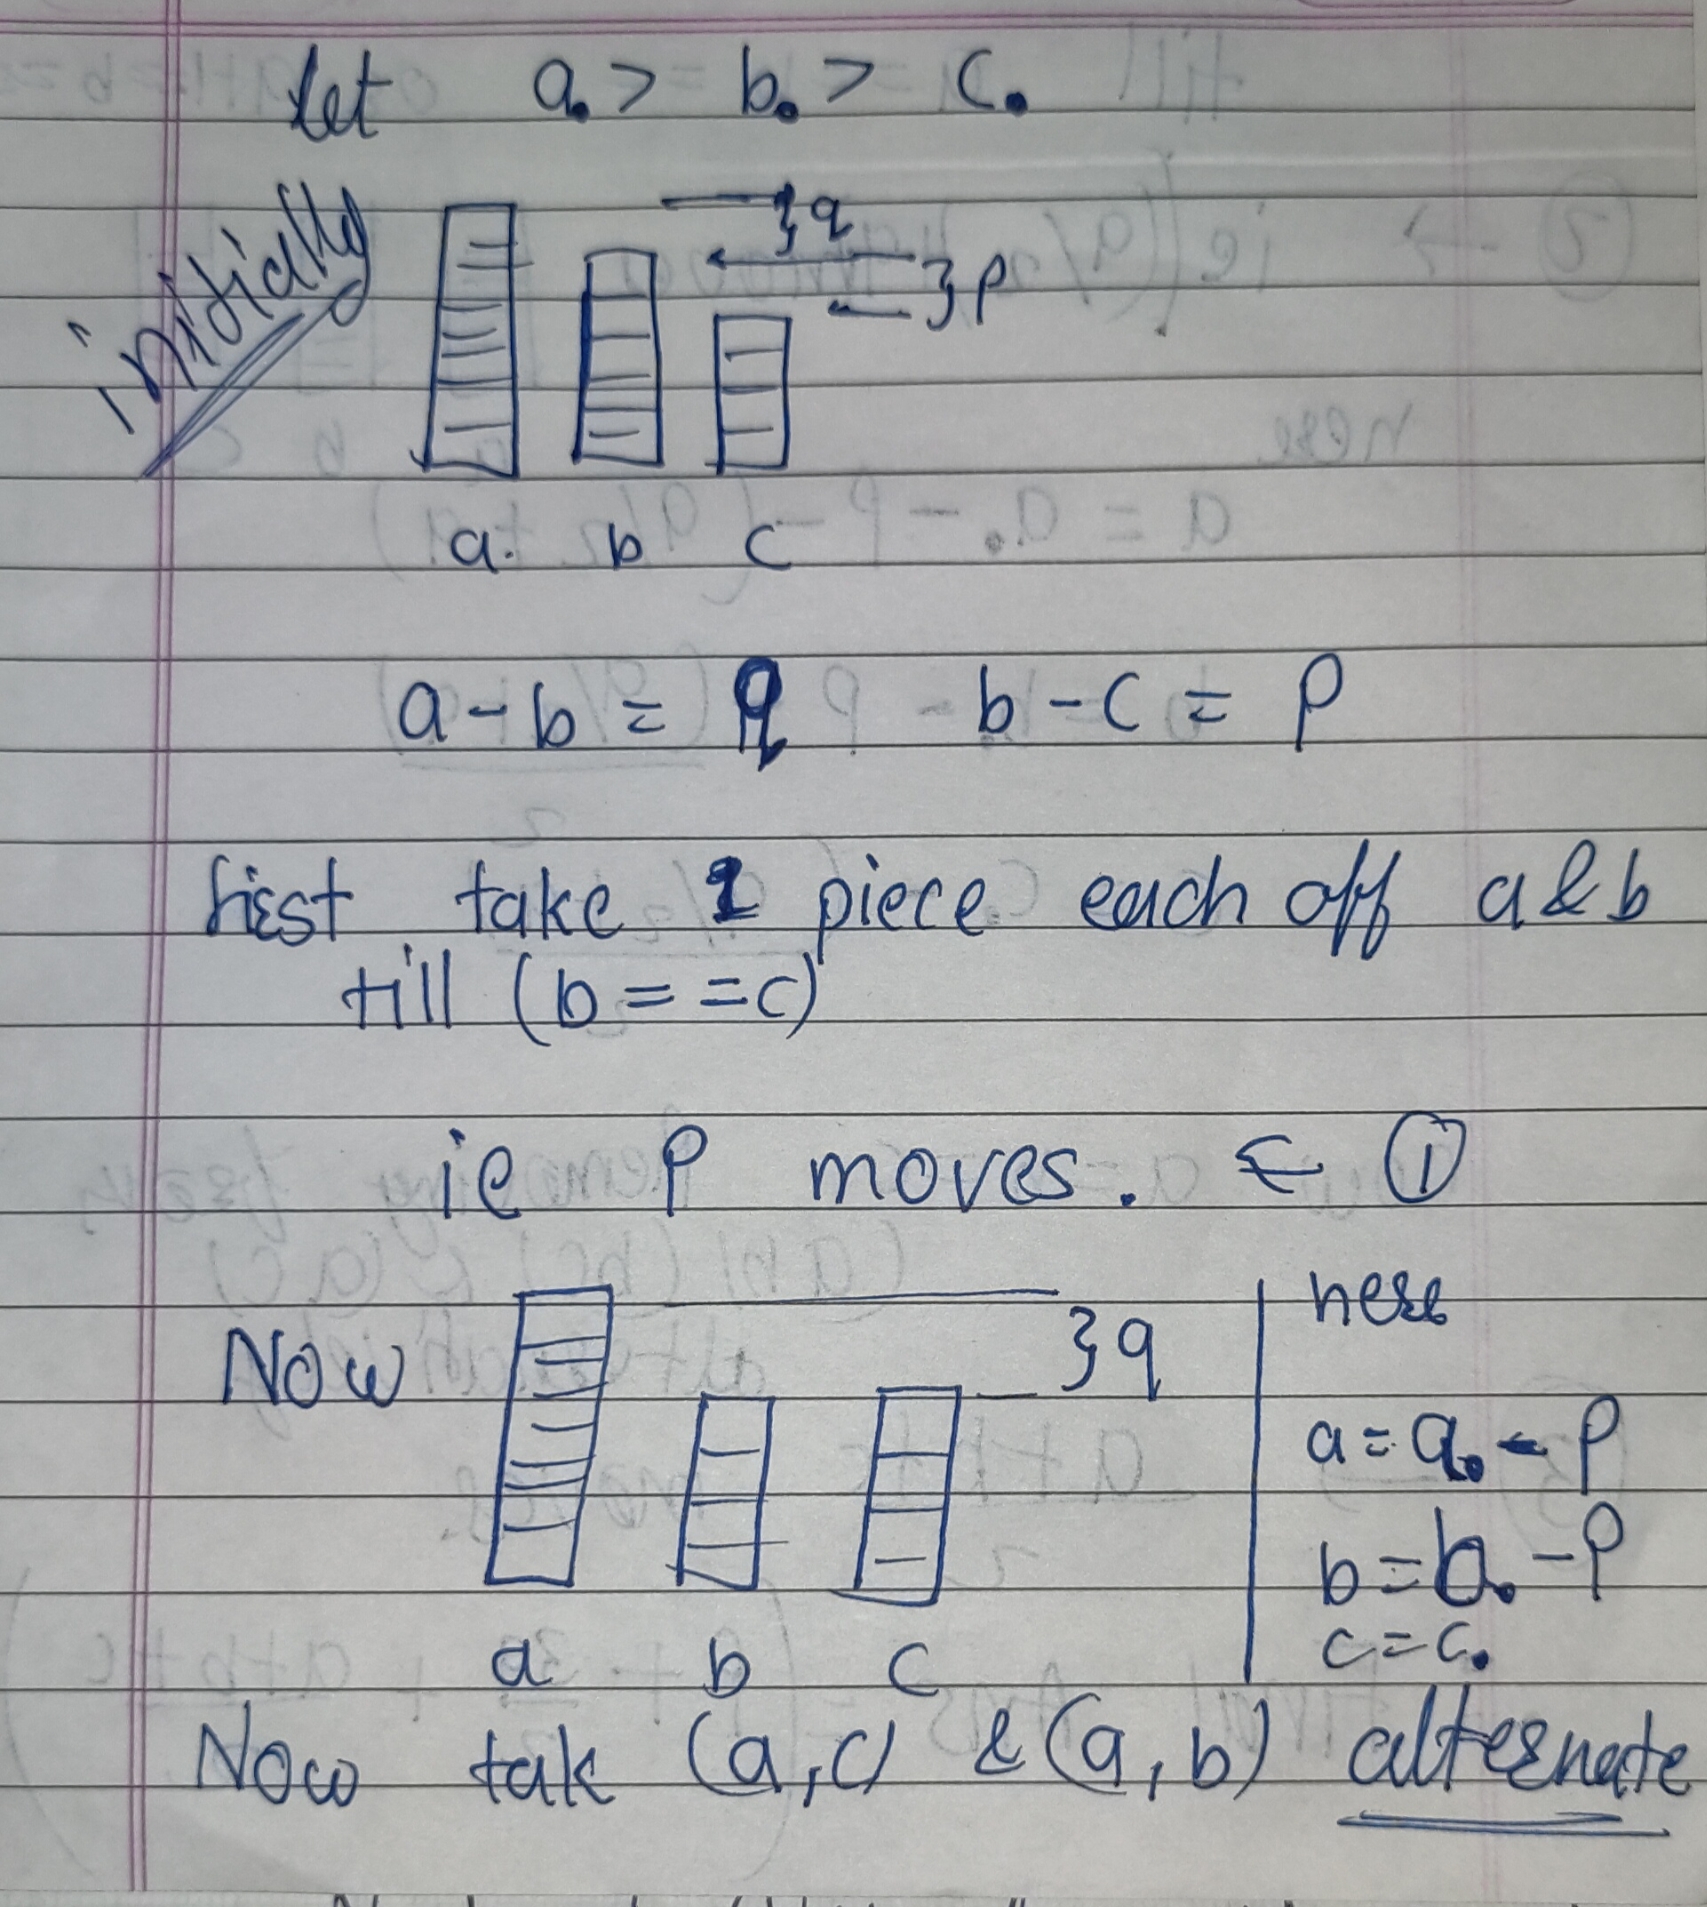 let a₀ > b₀ > c₀
initially
}q
}p
a. b c
a - b = q b - c = p
first take 1 piece each off a & b
till (b = = c)
ie p moves. ← ①
Now }q here
a = a₀ - p
b = b₀ - p
c = c₀
a b c
Now tak (a, c) & (a, b) alternate